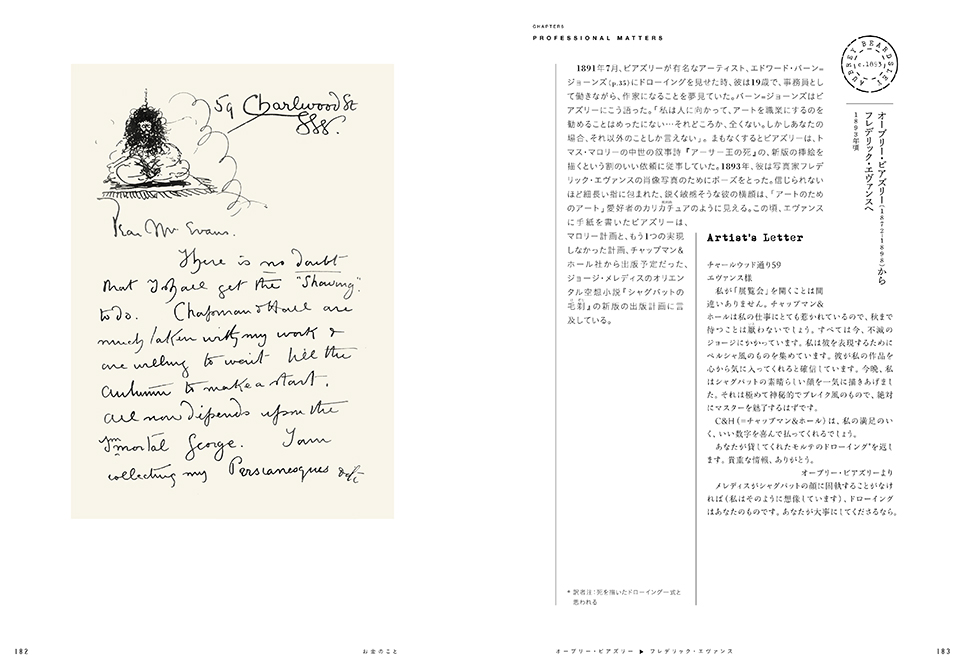 59 Charlwood St
SW.
Dear Mr Evans.
There is no doubt
that I shall get the "Shaving"
to do. Chapman & Hall are
much taken with my work &
are willing to wait till the
autumn to make a start.
All now depends upon the
Immortal George. I am
collecting my Persianesques
182
お金のこと
CHAPTER5
PROFESSIONAL MATTERS
1891年7月、ビアズリーが有名なアーティスト、エドワード・バーン=
ジョーンズ(p.35)にドローイングを見せた時、彼は19歳で、事務員とし
て働きながら、作家になることを夢見ていた。バーン=ジョーンズはビ
アズリーにこう語った。「私は人に向かって、アートを職業にするのを
勧めることはめったにない…それどころか、全くない。しかしあなたの
場合、それ以外のことしか言えない」。まもなくするとビアズリーは、ト
マス・マロリーの中世の叙事詩『アーサー王の死』の、新版の挿絵を
描くという割のいい依頼に従事していた。1893年、彼は写真家フレ
デリック・エヴァンスの肖像写真のためにポーズをとった。信じられない
ほど細長い指に包まれた、鋭く敏感そうな彼の横顔は、「アートのため
のアート」愛好者のカリカチュアのように見える。この頃、エヴァンス
に手紙を書いたビアズリーは、
マロリー計画と、もう1つの実現
しなかった計画、チャップマン&
ホール社から出版予定だった、
ジョージ・メレディスのオリエン
タル空想小説『シャグパットの
毛剃』の新版の出版計画に言
及している。
*訳者注:死を描いたドローイング一式と
思われる
AUBREY BEARDSLEY
c.1893
オーブリー・ビアズリー(1872-1898)から
フレデリック・エヴァンスへ
1893年頃
Artist's Letter
チャールウッド通り59
エヴァンス様
私が「展覧会」を開くことは間
違いありません。チャップマン&
ホールは私の仕事にとても惹かれているので、秋まで
待つことは厭わないでしょう。すべては今、不滅の
ジョージにかかっています。私は彼を表現するために
ペルシャ風のものを集めています。彼が私の作品を
心から気に入ってくれると確信しています。今晩、私
はシャグパットの素晴らしい顔を一気に描きあげまし
た。それは極めて神秘的でブレイク風のもので、絶対
にマスターを魅了するはずです。
C&H(=チャップマン&ホール)は、私の満足のい
く、いい数字を喜んで払ってくれるでしょう。
あなたが貸してくれたモルテのドローイング*を返し
ます。貴重な情報、ありがとう。
オーブリー・ビアズリーより
メレディスがシャグパットの顔に固執することがなけ
れば(私はそのように想像しています)、ドローイング
はあなたのものです。あなたが大事にしてくださるなら。
オーブリー・ビアズリー ▶ フレデリック・エヴァンス
183